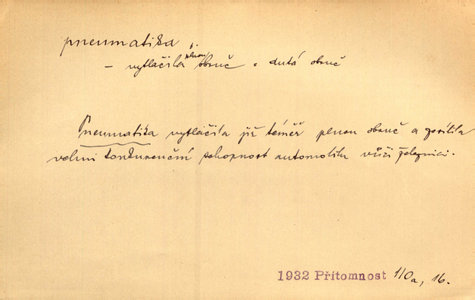 pneumatika
– vytlačila plnou obruč • dutá obruč
Pneumatika vytlačila již téměř plnou obruč a zesílila
velmi konkurenční schopnost automobilu vůči železnici.
1932 Přítomnost 110a, 16.